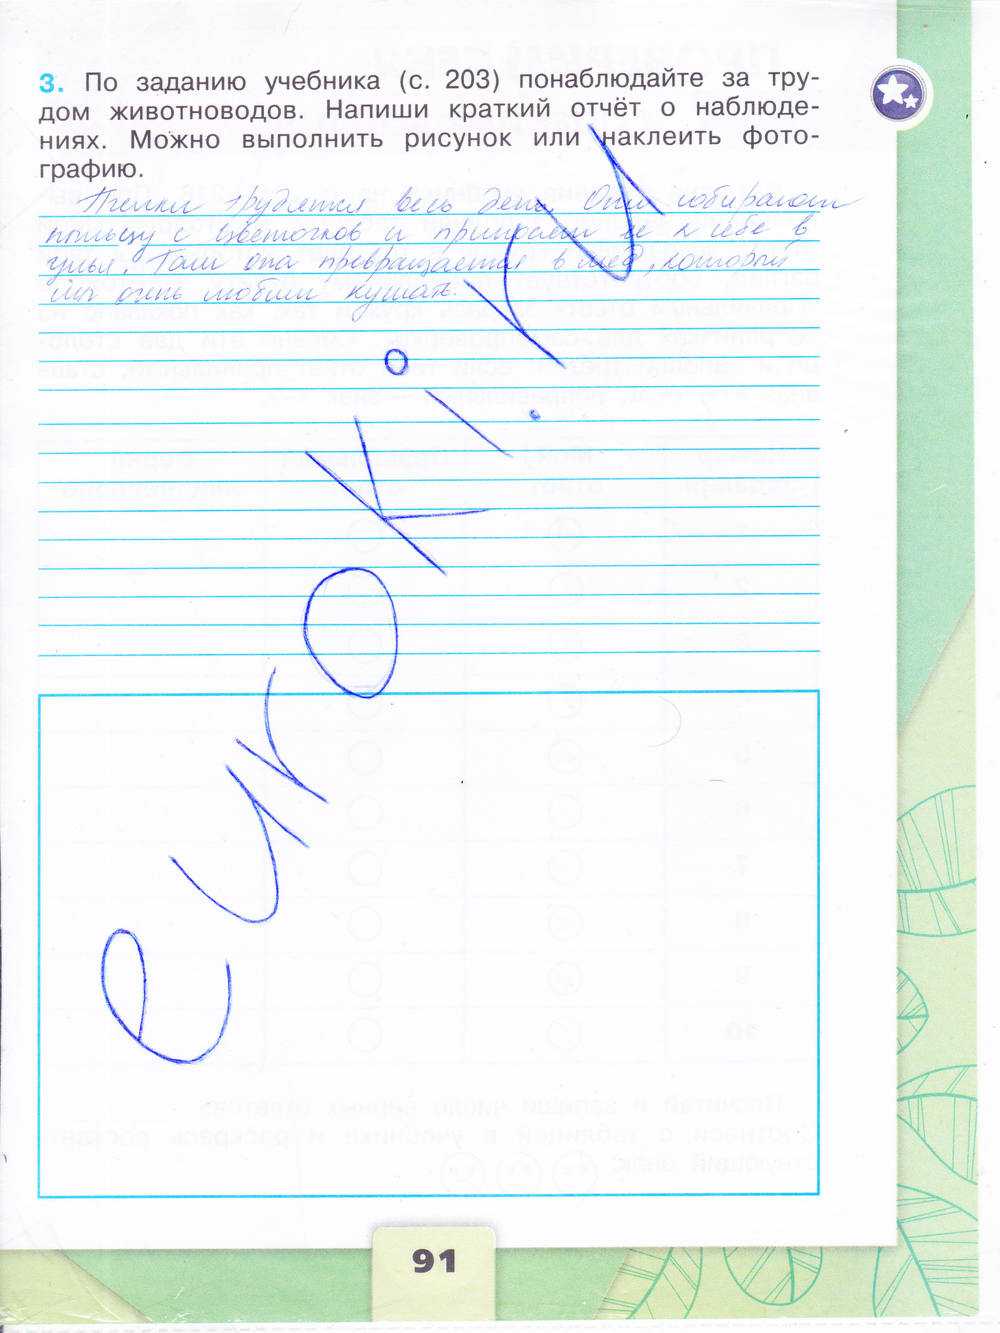 3. По заданию учебника (с. 203) понаблюдайте за тру-
дом животноводов. Напиши краткий отчёт о наблюде-
ниях. Можно выполнить рисунок или наклеить фото-
графию.
Пчелки трудятся весь день. Они собирают
пыльцу с цветочков и приносят ее к себе в
улья. Там она превращается в мёд, который
мы очень любим кушать.
eurokі.ru
91